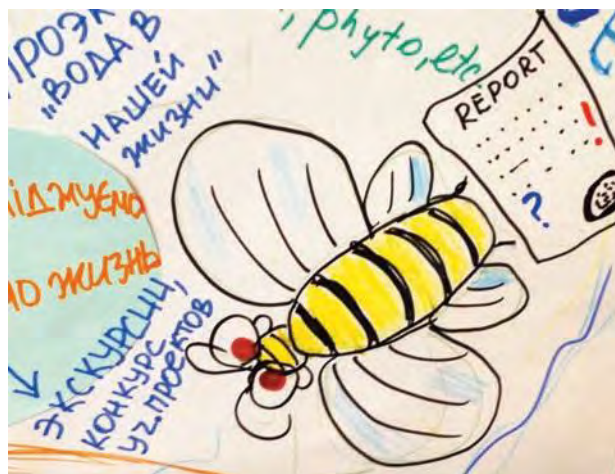 ПРОЭК
„ВОДА В
НАШЕЙ
ЖИЗНИ"
, phyto, etc
REPORT
!
?
ІДЖУЄМО
ЖИЗНЬ
ЭКСКУРСИИ,
КОНКУРС
УЧ. ПРОЕКТОВ